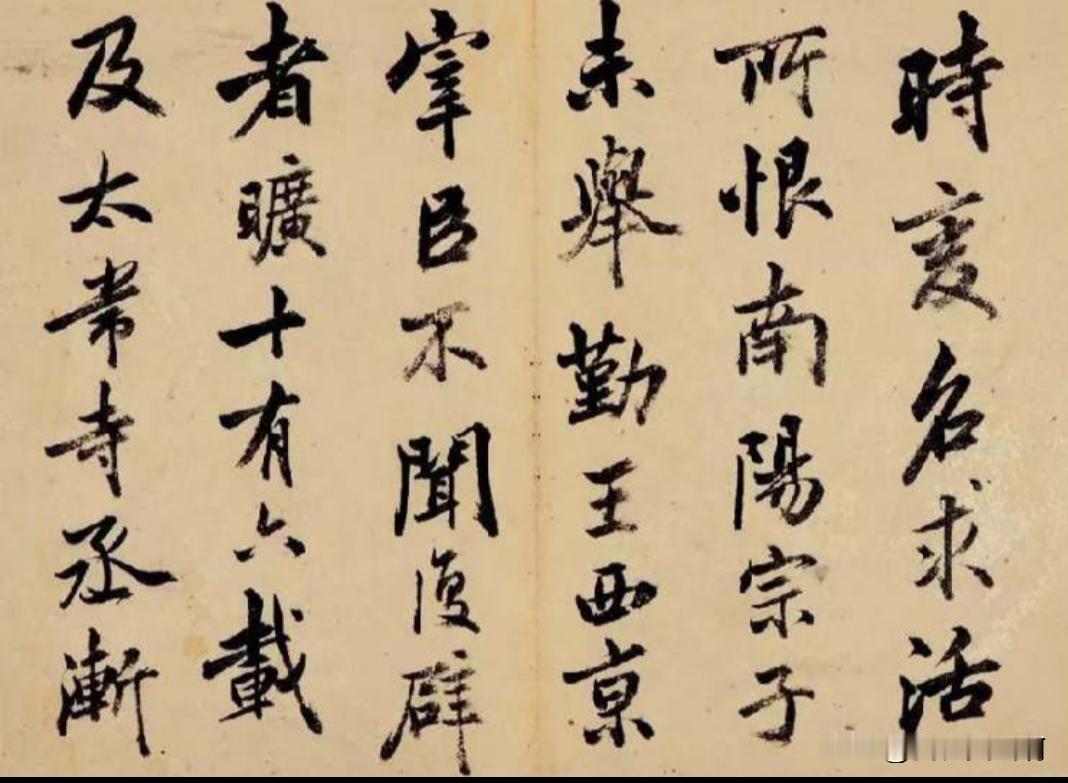 時変名求活
所恨南陽宗子
未舉勤王西京
宰臣不聞復辟
者曠十有六載
及太常寺丞漸